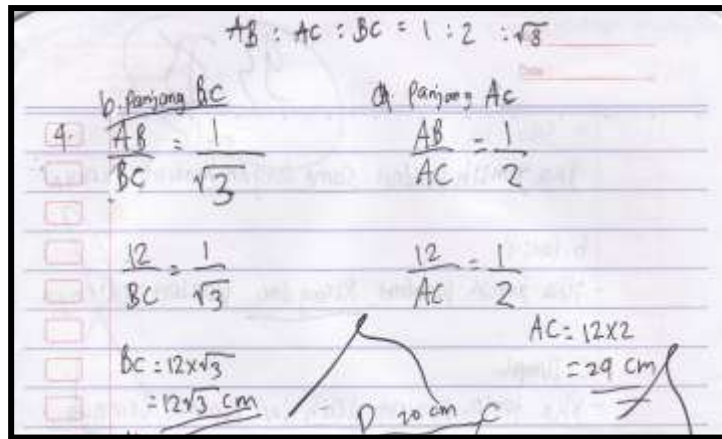 AB : AC : BC = 1 : 2 : √3
b. Panjang BC
4. AB/BC = 1/√3
12/BC = 1/√3
BC = 12×√3
= 12√3 cm
a. Panjang AC
AB/AC = 1/2
12/AC = 1/2
AC = 12×2
= 24 cm
D 20 cm C